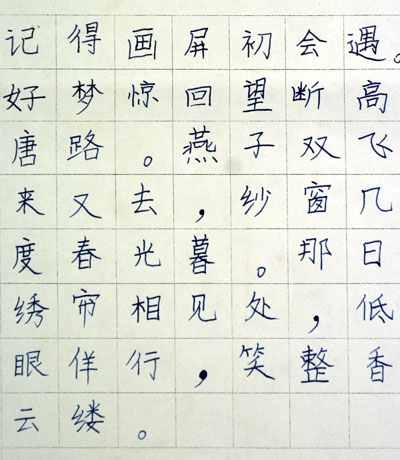 记得画屏初会遇。
好梦惊回望断高
唐路。燕子双飞
来又去，纱窗几
度春光暮。那日
绣帘相见处，低
眼佯行，笑整香
云缕。